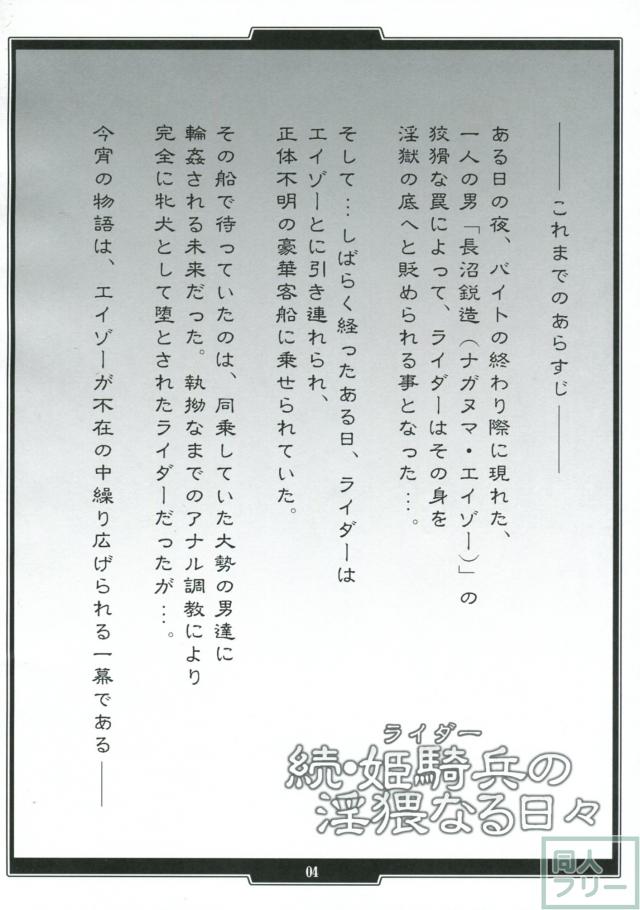 ――これまでのあらすじ――
ある日の夜、バイトの終わり際に現れた、
一人の男「長沼鋭造（ナガヌマ・エイゾー）」の
狡猾な罠によって、ライダーはその身を
淫獄の底へと貶められる事となった…。
そして…しばらく経ったある日、ライダーは
エイゾーとに引き連れられ、
正体不明の豪華客船に乗せられていた。
その船で待っていたのは、同乗していた大勢の男達に
輪姦される未来だった。執拗なまでのアナル調教により
完全に牝犬として堕とされたライダーだったが…。
今宵の物語は、エイゾーが不在の中繰り広げられる一幕である――
ライダー
続・姫騎兵の
淫猥なる日々
04
同人
フリー